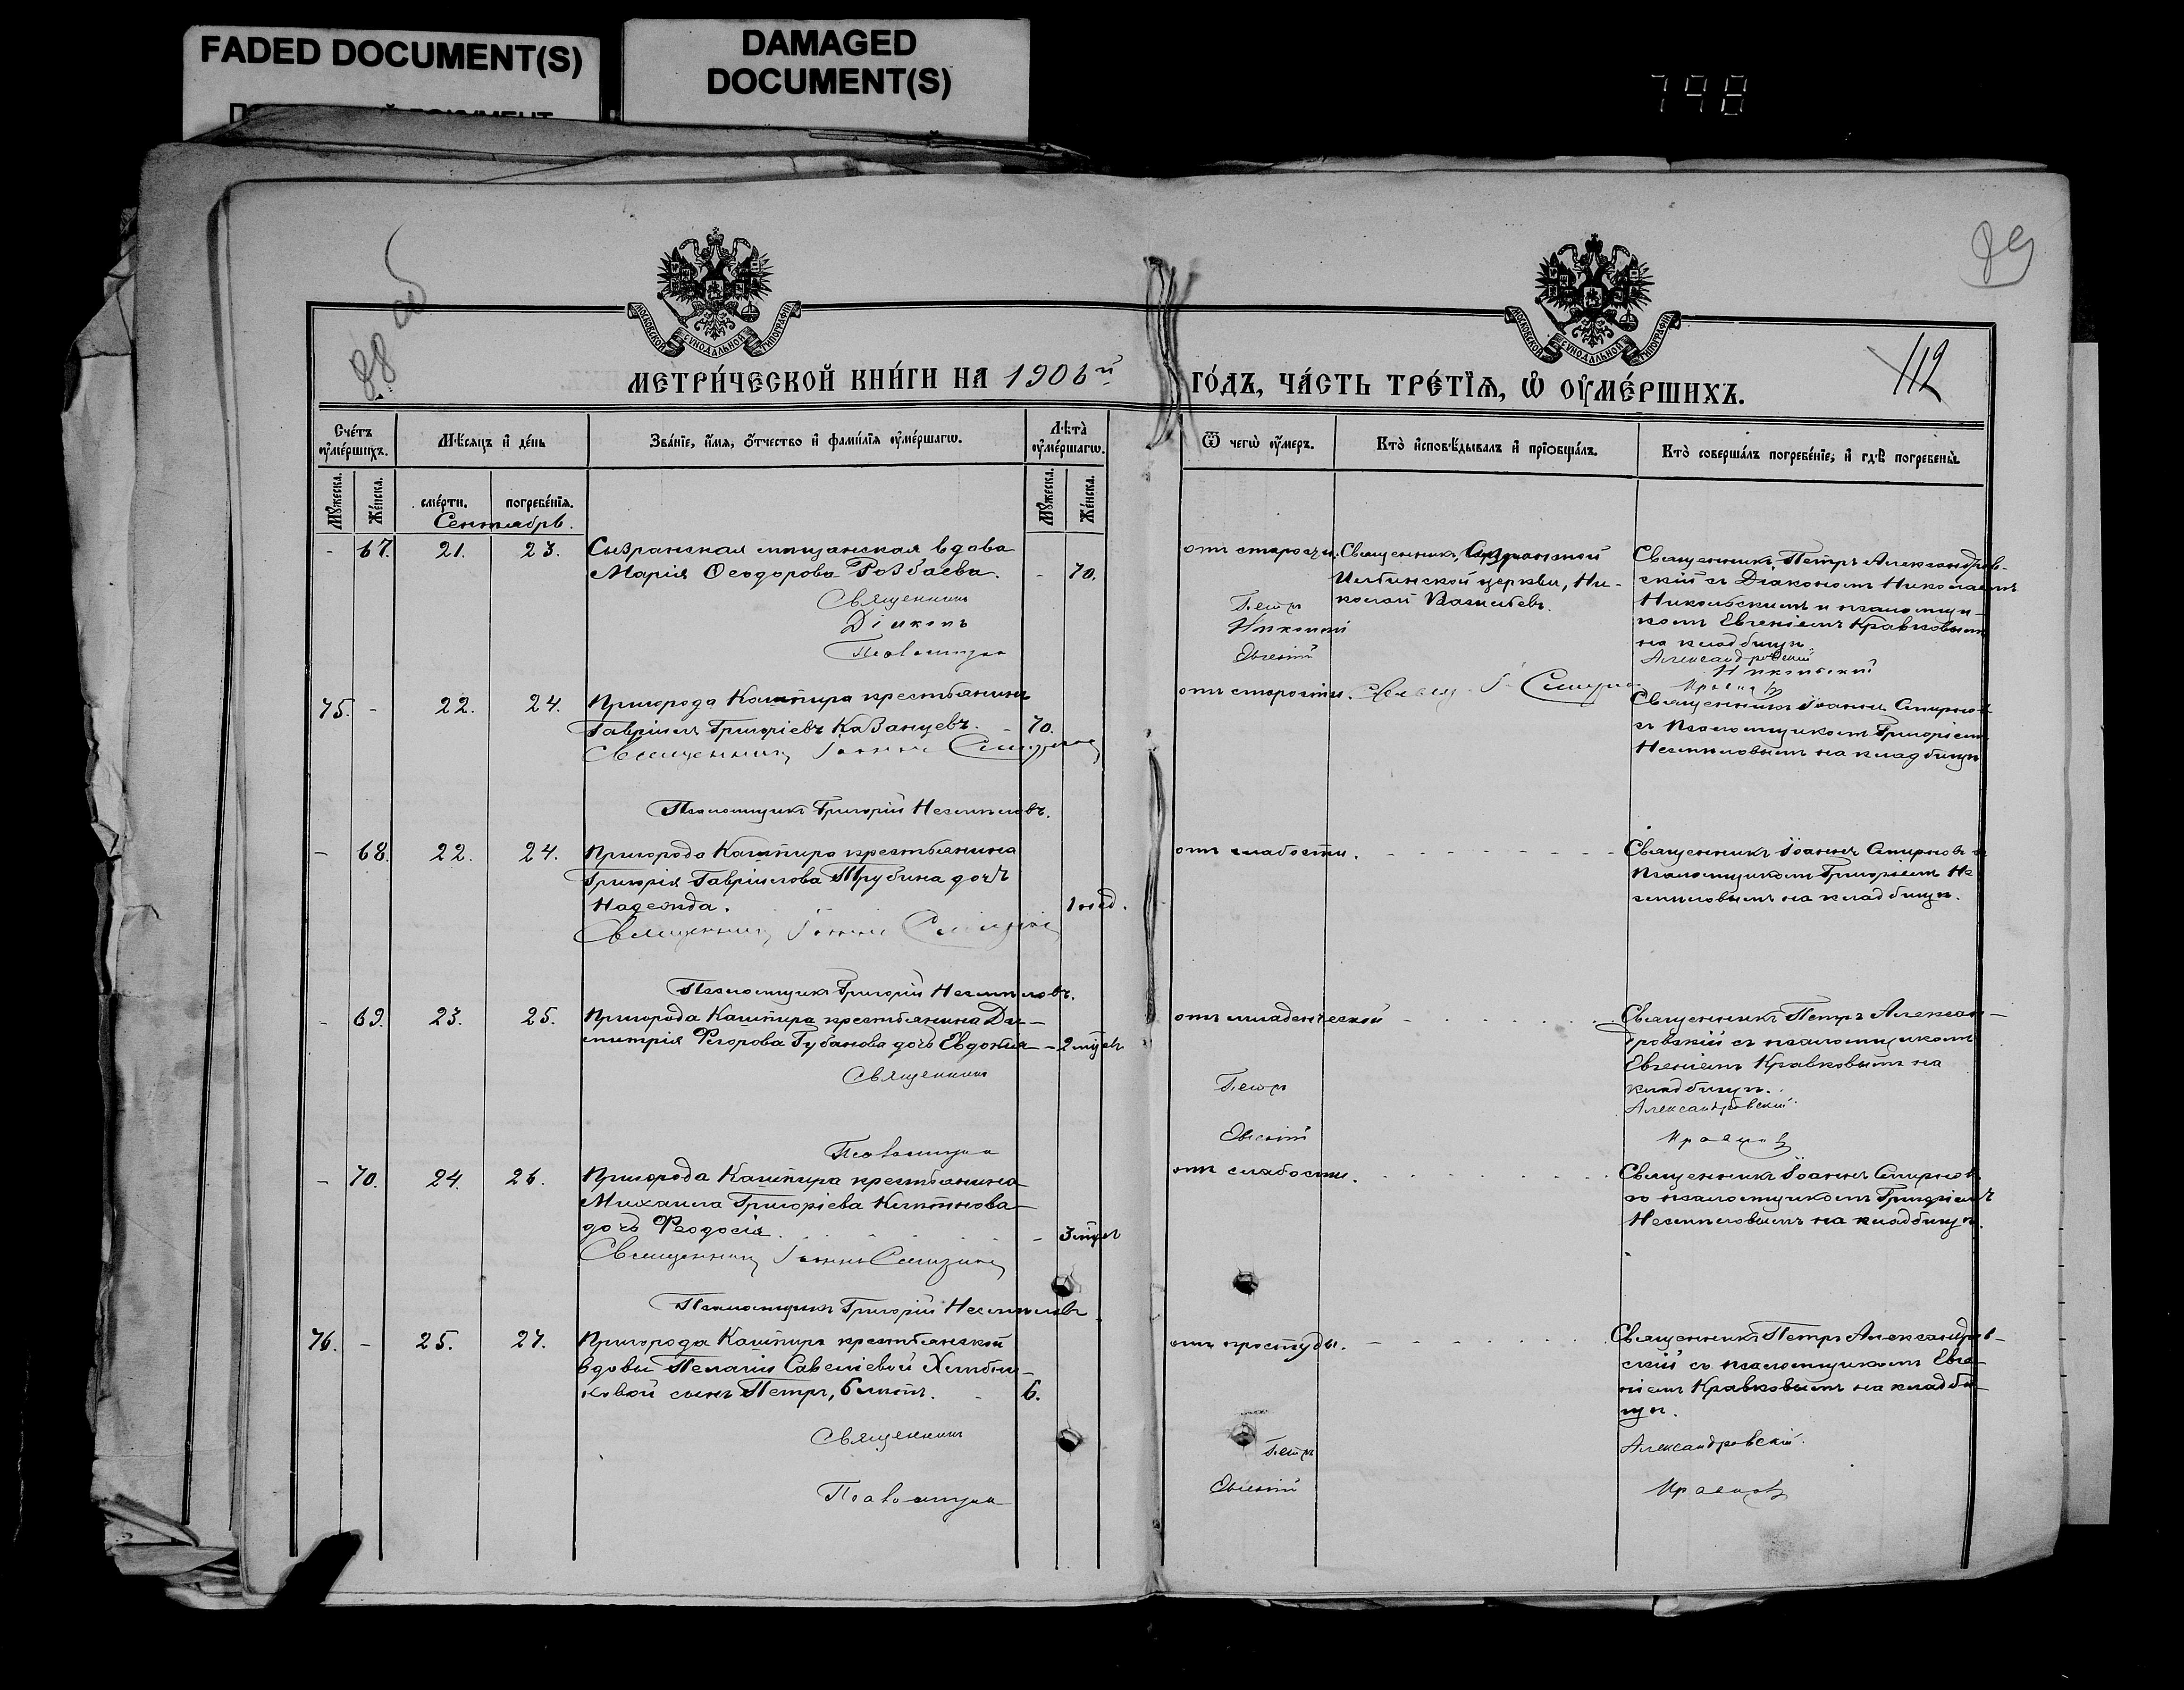 FADED DOCUMENT(S)
DAMAGED
DOCUMENT(S)
798
88 об
89
112
МОСКОВСКОЙ СѴНОДАЛЬНОЙ ТИПОГРАФІИ
МОСКОВСКОЙ СѴНОДАЛЬНОЙ ТИПОГРАФІИ
МЕТРИ́ЧЕСКОЙ КНИ́ГИ НА 1906й ГО́ДЪ, ЧА́СТЬ ТРЕ́ТЇѦ, Ѡ҆ ОУ҆МЕ́РШИХЪ.
Сче́тъ оу҆ме́ршихъ.
Мѣ́сяцъ и҆ де́нь
Зва́нїе, и҆́мя, о҆́тчество и҆ фами́лїя оу҆ме́ршагѡ.
Лѣ́та̀ оу҆ме́ршагѡ.
Ѿ чегѡ̀ оу҆́меръ.
Кто̀ и҆сповѣ́дывалъ и҆ прїѡбща́лъ.
Кто̀ соверша́лъ погребе́нїе, и҆ гдѣ̀ погребены̀.
Му́жеска. Же́нска.
сме́рти. погребе́нїя.
Му́жеска. Же́нска.
Сентябрь.
- 67. 21. 23. Сызранская мѣщанская вдова
Марія Ѳеодорова Розбаева. - 70.
Священникъ
Діаконъ
Псаломщикъ
от старости.
Петръ
Николай
Евгеній
Священникъ Сызранской
Ильинской церкви, Ни-
колай Васильевъ.
Священникъ Петръ Александров-
скій съ Діакономъ Николаемъ
Никольскимъ и псаломщи-
комъ Евгеніемъ Кравковымъ
на кладбищѣ.
Александровскій
Никольскій
Кравковъ
75. - 22. 24. Пригорода Кашпира крестьянинъ
Гавріилъ Григоріевъ Казанцевъ. - 70.
Священникъ Іоаннъ Смирновъ
Псаломщикъ Григорій Несмѣловъ.
отъ старости. Священ. І. Смирнов
Священникъ Іоаннъ Смирновъ
съ Псаломщикомъ Григоріемъ
Несмѣловымъ на кладбищѣ
- 68. 22. 24. Пригорода Кашпира крестьянина
Григорія Гавріилова Трубина дочь
Надежда. 1 нед.
Священникъ Іоаннъ Смирновъ
Псаломщикъ Григорій Несмѣловъ.
отъ слабости.
Священникъ Іоаннъ Смирновъ съ
Псаломщикомъ Григоріемъ Не-
смѣловымъ на кладбищѣ.
- 69. 23. 25. Пригорода Кашпира крестьянина Ди-
митрія Ѳегорова Губанова дочь Евдокія - 2 мѣсяц.
Священникъ
Псаломщикъ
отъ младенческой
Петръ
Евгеній
Священникъ Петръ Алексан-
дровскій съ псаломщикомъ
Евгеніемъ Кравковымъ на
кладбищѣ.
Александровскій.
Кравковъ
- 70. 24. 26. Пригорода Кашпира крестьянина
Михаила Григоріева
дочь Ѳеодосія. - 3 мѣсяц.
Священникъ Іоаннъ Смирновъ
Псаломщикъ Григорій Несмѣловъ
отъ слабости.
Священникъ Іоаннъ Смирновъ
со псаломщикомъ Григоріемъ
Несмѣловымъ на кладбищѣ.
76. - 25. 27. Пригорода Кашпира крестьянской
вдовы Пелагіи Савеліевой Хлѣбни-
ковой сынъ Петръ, 6 лѣтъ. - 6.
Священникъ
Псаломщикъ
отъ простуды.
Петръ
Евгеній
Священникъ Петръ Александров-
скій съ псаломщикомъ Евге-
ніемъ Кравковымъ на кладби-
щѣ.
Александровскій.
Кравковъ